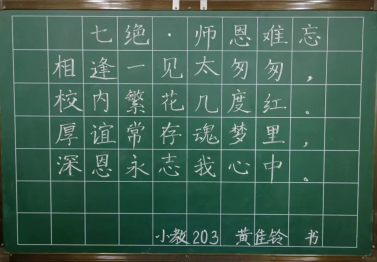 七绝·师恩难忘
相逢一见太匆匆，
校内繁花几度红。
厚谊常存魂梦里，
深恩永志我心中。
小教203 黄佳铃 书